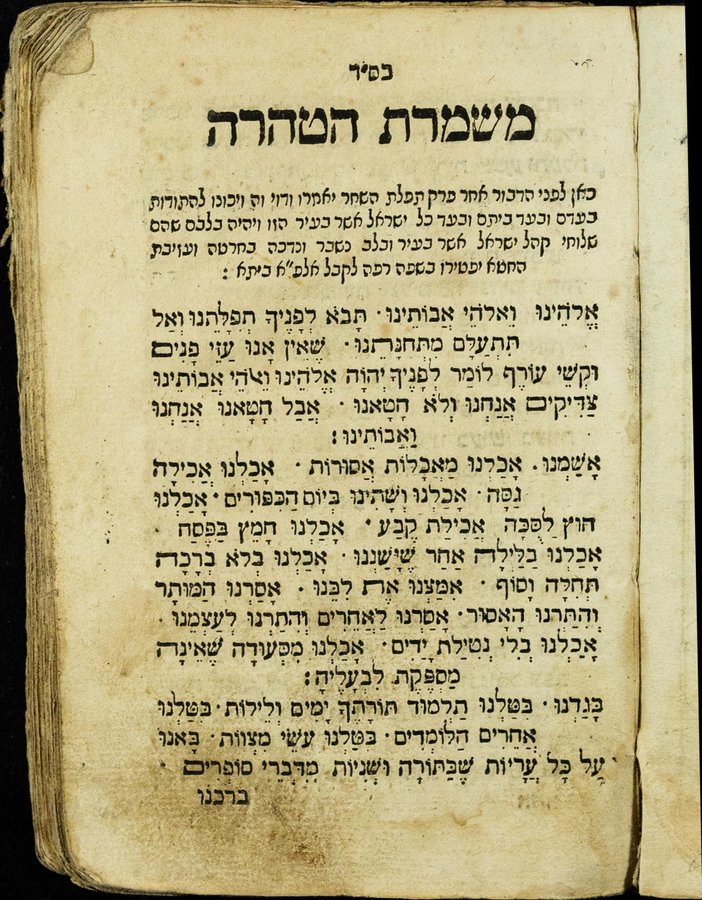 בס״ד
משמרת הטהרה
כאן לפני הדבור אחר פרק תפלת השחר יאמרו ודוי זה ויכונו להתודות
בעדם ובעד ביתם ובעד כל ישראל אשר בעיר הזו ויהיה בלבם שהם
שלוחי קהל ישראל אשר בעיר ובלב נשבר ונדכה בחרטה ועזיבת
החטא יפטירו בשפה רפה לקבל אלפ״א ביתא :
אֱלֹהֵינוּ וֵאלֹהֵי אֲבוֹתֵינוּ · תָּבֹא לְפָנֶיךָ תְּפִלָּתֵנוּ וְאַל
תִּתְעַלַּם מִתְּחִנָּתֵנוּ · שֶׁאֵין אָנוּ עַזֵּי פָנִים
וּקְשֵׁי עוֹרֶף לוֹמַר לְפָנֶיךָ יְהוָֹה אֱלֹהֵינוּ וֵאלֹהֵי אֲבוֹתֵינוּ
צַדִּיקִים אֲנַחְנוּ וְלֹא חָטָאנוּ · אֲבָל חָטָאנוּ אֲנַחְנוּ
וַאֲבוֹתֵינוּ :
אָשַׁמְנוּ. אָכַלְנוּ מַאֲכָלוֹת אֲסוּרוֹת · אָכַלְנוּ אֲכִילָה
גַסָּה · אָכַלְנוּ וְשָׁתִינוּ בְּיוֹם הַכִּפּוּרִים · אָכַלְנוּ
חוּץ לַסֻּכָּה אֲכִילַת קֶבַע · אָכַלְנוּ חָמֵץ בַּפֶּסַח ·
אָכַלְנוּ בַּלַּיְלָה אַחַר שֶׁיָּשַׁנְנוּ · אָכַלְנוּ בְּלֹא בְרָכָה
תְּחִלָּה וָסוֹף · אִמַּצְנוּ אֶת לִבֵּנוּ . אָסַרְנוּ הַמּוּתָר
וְהִתַּרְנוּ הָאָסוּר · אָסַרְנוּ לַאֲחֵרִים וְהִתַּרְנוּ לְעַצְמֵנוּ ·
אָכַלְנוּ בְּלִי נְטִילַת יָדַיִם · אָכַלְנוּ מִסְּעוּדָה שֶׁאֵינָהּ
מַסְפֶּקֶת לִבְעָלֶיהָ :
בָּגַדְנוּ · בִּטַּלְנוּ תַלְמוּד תּוֹרָתֶךָ יָמִים וְלֵילוֹת · בִּטַּלְנוּ
אֲחֵרִים הַלּוֹמְדִים · בִּטַּלְנוּ עוֹשֵׂי מִצְווֹת · בָּאנוּ
עַל כָּל עֲרָיוֹת שֶׁבַּתּוֹרָה וּשְׁנִיּוֹת מִדִּבְרֵי סוֹפְרִים ·
ברכנו